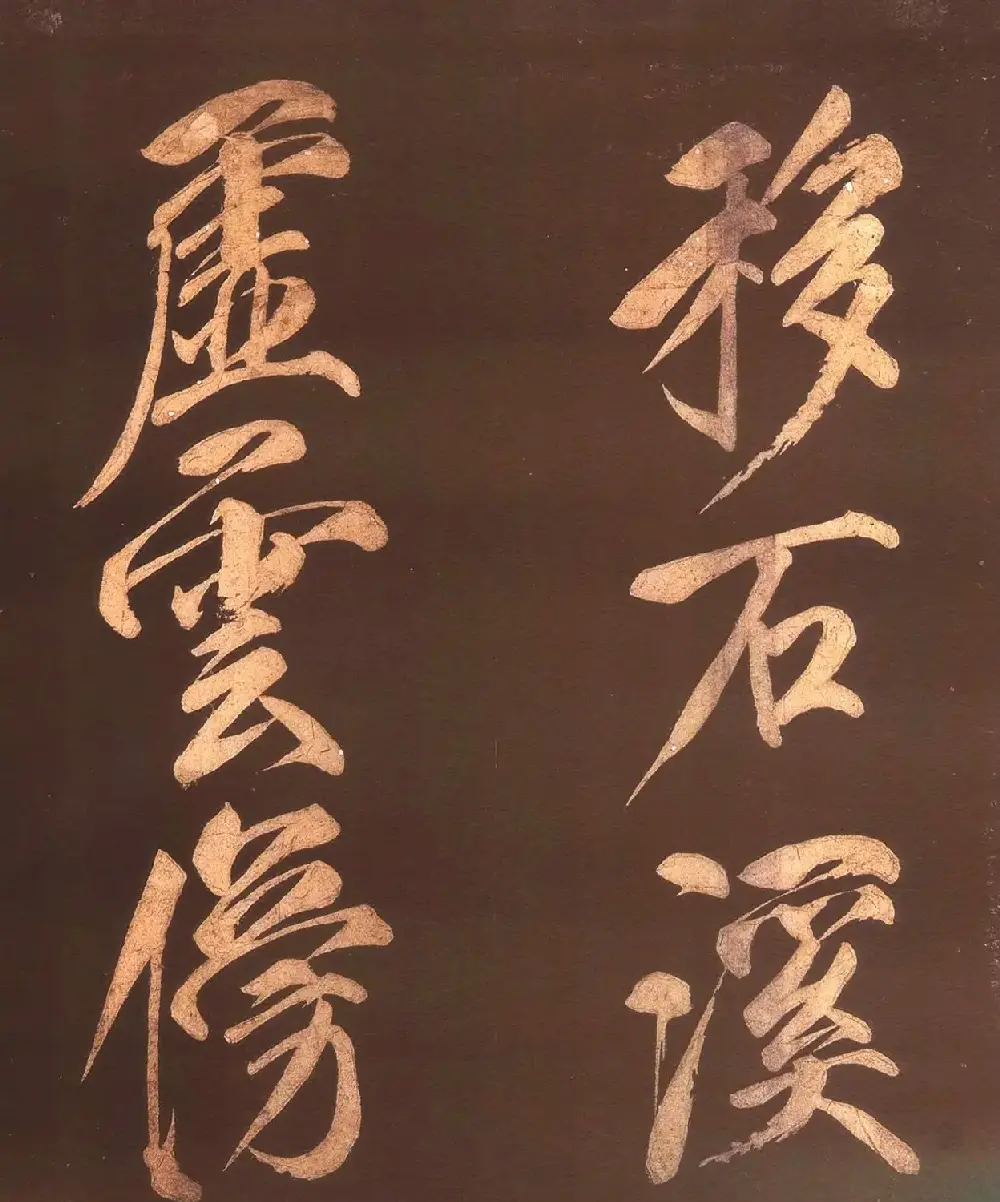 移石溪
虛雲傍